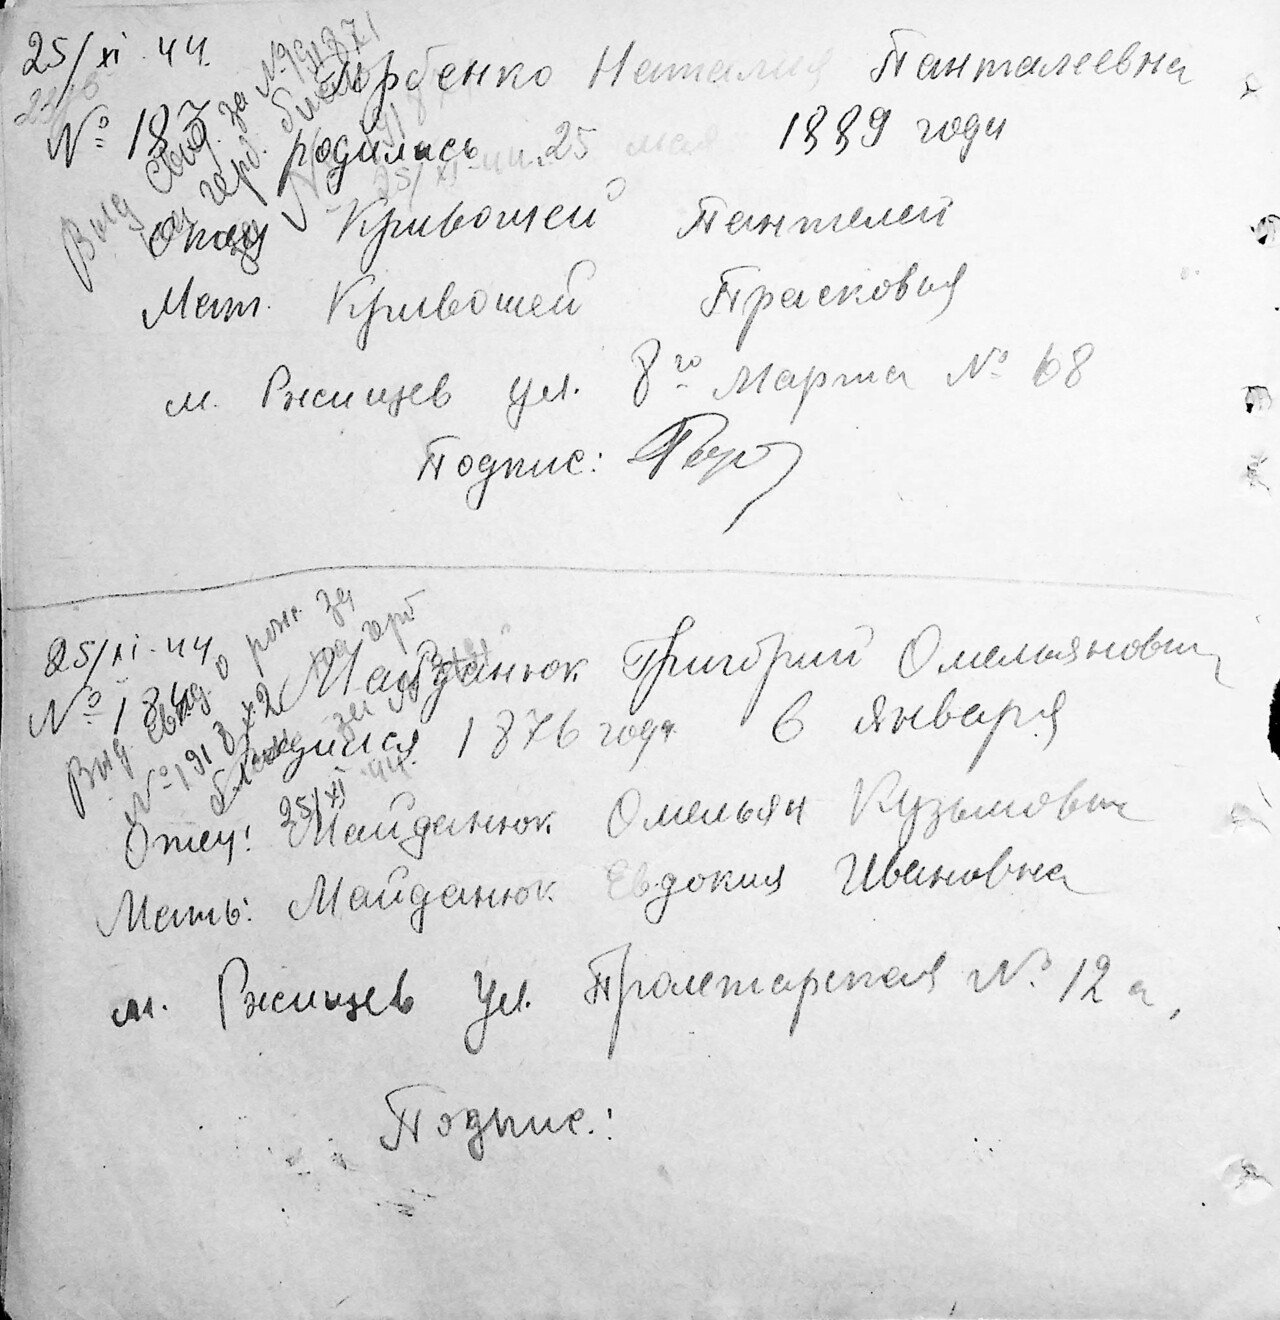 25/XI 44.
№ 187
Горбенко Наталия Панталеевна
родилась 25 мая 1889 года
Отец Кривошей Пантелей
Мат. Кривошей Прасковья
м. Ржищев ул. 8го Марта № 68
Подпис:
25/XI-44
№ 188
Майданюк Григорий Омельянович
родился 1876 года 6 января
Отец: Майданюк Омельян Кузьмович
Мать: Майданюк Евдокия Ивановна
м. Ржищев ул. Пролетарская № 12 а,
Подпис:
Выд. свид. о рожд. за
№ 191872
25/XI 44